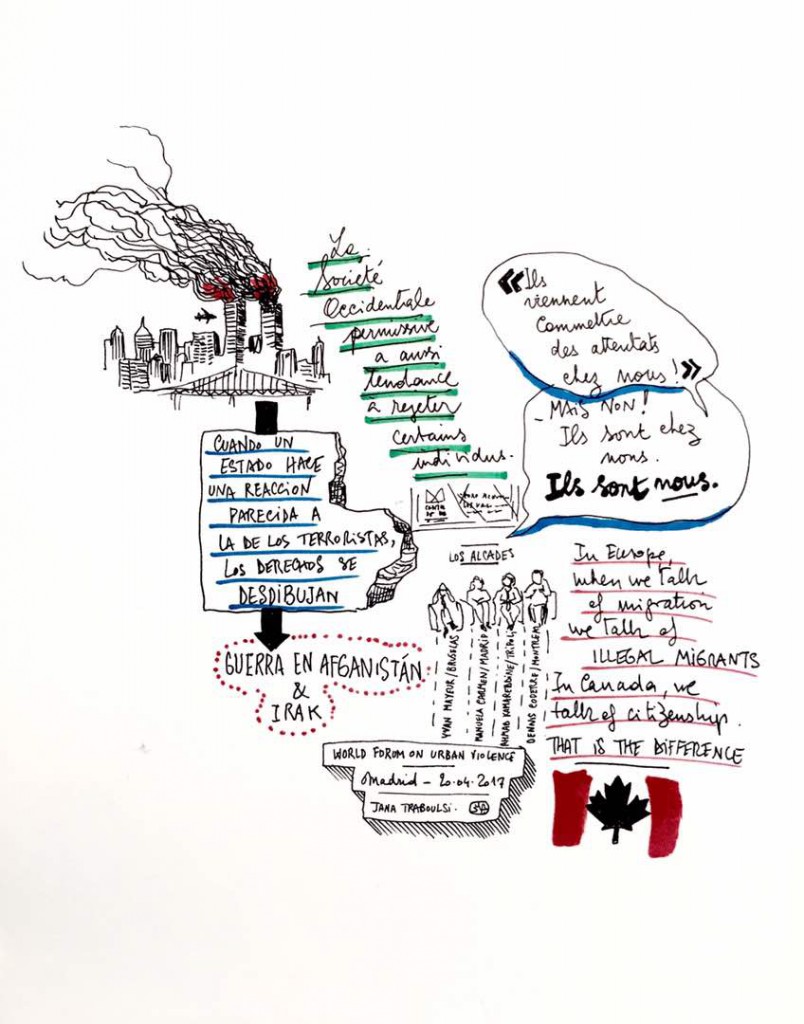 CUANDO UN
ESTADO HACE
UNA REACCION
PARECIDA A
LA DE LOS TERRORISTAS,
LOS DERECHOS SE
DESDIBUJAN
GUERRA EN AFGANISTÁN
&
IRAK
La
Société
Occidentale
permissive
a aussi
tendance
à rejeter
certains
individus.
«Ils
viennent
Commettre
des attentats
chez nous!»
- MAIS NON!
Ils sont chez
nous.
Ils sont nous.
LOS ALCADES
YVAN MAYEUR/BRUSELAS
MANUELA CARMEN/MADRID
AHMAD KAMAREDDINE/TRIPOLI
DENNIS CODERRE/MONTREAL
In Europe,
when we talk
of migration
we talk of
ILLEGAL MIGRANTS
In Canada, we
talk of citizenship.
THAT IS THE DIFFERENCE
WORLD FORUM ON URBAN VIOLENCE
Madrid - 20.04.2017
JANA TRABOULSI.